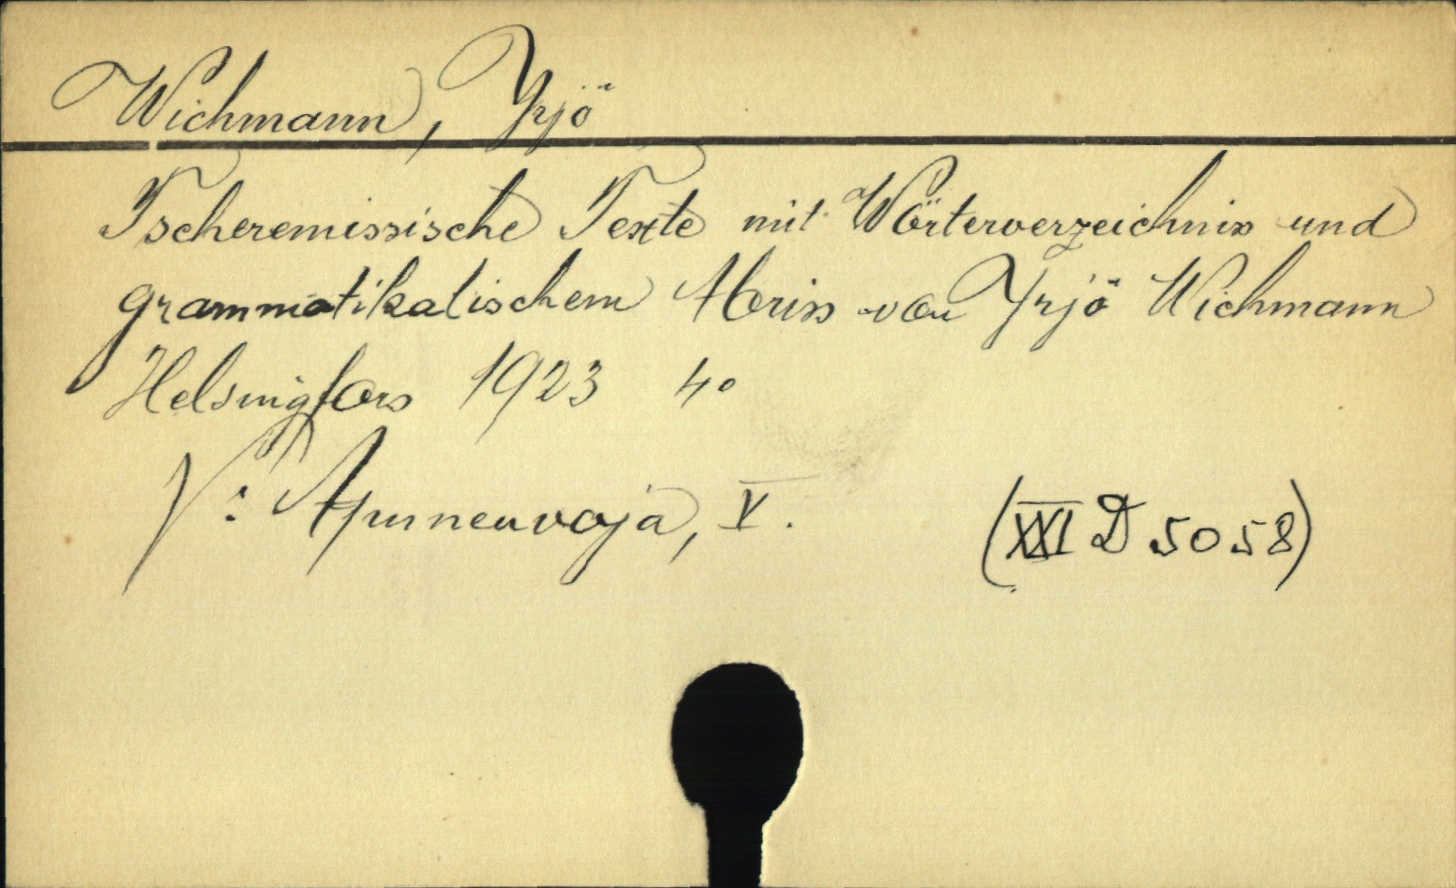 Wichmann, Yrjö
Tscheremissische Texte mit Wörterverzeichnis und
grammatikalischem Abriss von Yrjö Wichmann
Helsingfors 1923 4°
V: Apuneuvoja, V.
(XXI D 5058)